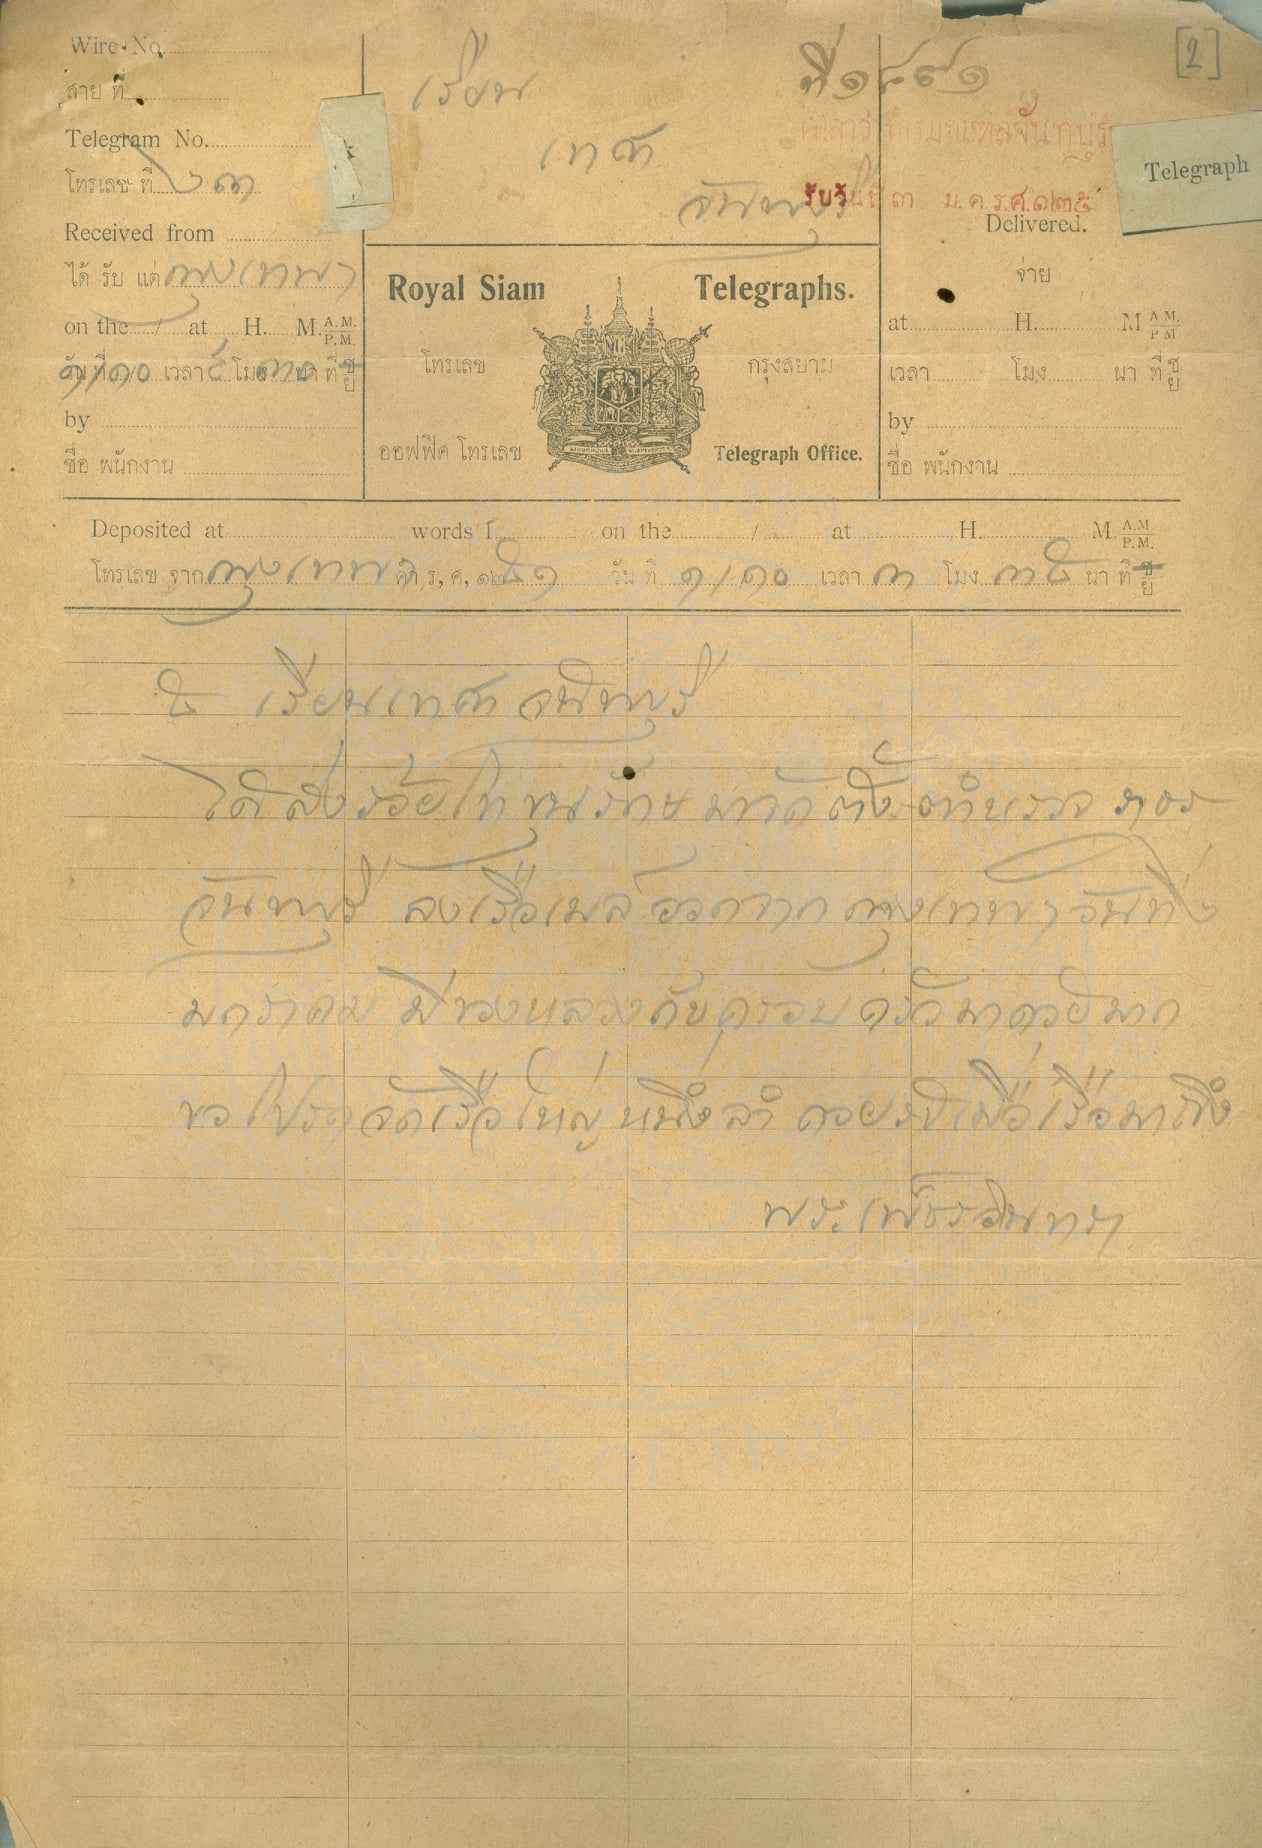 [2]
Wire No.
สาย ที่
Telegram No.
โทรเลข ที่ ๖๓
Received from
ได้ รับ แต่ กรุงเทพฯ
on the / at H. M. A.M. P.M.
วัน ที่ ๑/๑๐ เวลา ๕ โมง ๓๐ นา ที่ ช ย
by
ชื่อ พนักงาน
เรียน
เทศา
จันทบุรี
Royal Siam Telegraphs.
โทรเลข กรุงสยาม
ออฟฟิศ โทรเลข Telegraph Office.
ที่ ๑๘๙๑
ศาลาว่าการมณฑลจันทบุรี
รับวันที่ ๓ ม.ค. ร.ศ. ๑๒๕
Telegraph
Delivered.
จ่าย
at H. M A.M. P.M
เวลา โมง นา ที่ ช ย
by
ชื่อ พนักงาน
Deposited at words on the / at H. M. A.M. P.M.
โทรเลข จาก กรุงเทพฯ คำ ร, ศ, ๑๒๕ ๕๑ วัน ที่ ๑/๑๐ เวลา ๓ โมง ๓๕ นา ที่ ช ย
ถึง เรียนเทศา จันทบุรี
ได้ส่งร้อยโทขุนรักษ มาจัดตั้งตำบรวจภูธร
จันทบุรี ลงเรือเมล์ออกจากกรุงเทพฯ วันที่ ๖
มกราคม มีของหลวงกับครอบครัวมาด้วยมาก
ขอโปรดจัดเรือใหญ่หนึ่งลำ คอยรับเมื่อเรือมาถึง
พระเพ็ชรอินทรา
Archives of Thailand